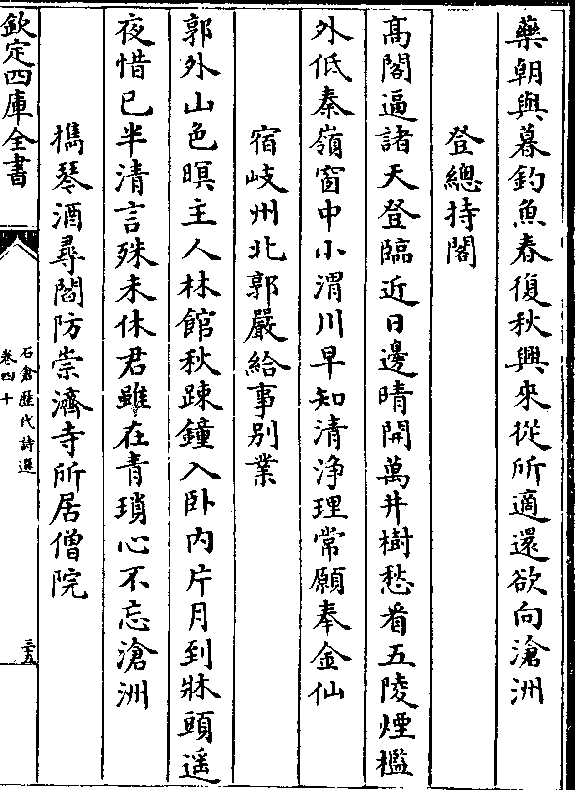 藥朝與暮釣魚春復秋興來從所適還欲向滄洲
登總持閣
髙閣逼諸天登臨近日邊晴開萬井樹愁㸔五陵煙檻
外低秦嶺窗中小渭川早知清浄理常願奉金仙
宿岐州北郭嚴給事别業
郭外山色暝主人林館秋疎鐘入卧内片月到牀頭遥
夜惜已半清言殊未休君雖在青瑣心不忘滄洲
攜琴酒尋閻防崇濟寺所居僧院
欽定四庫全書
石倉歴代詩選
卷四十
三五